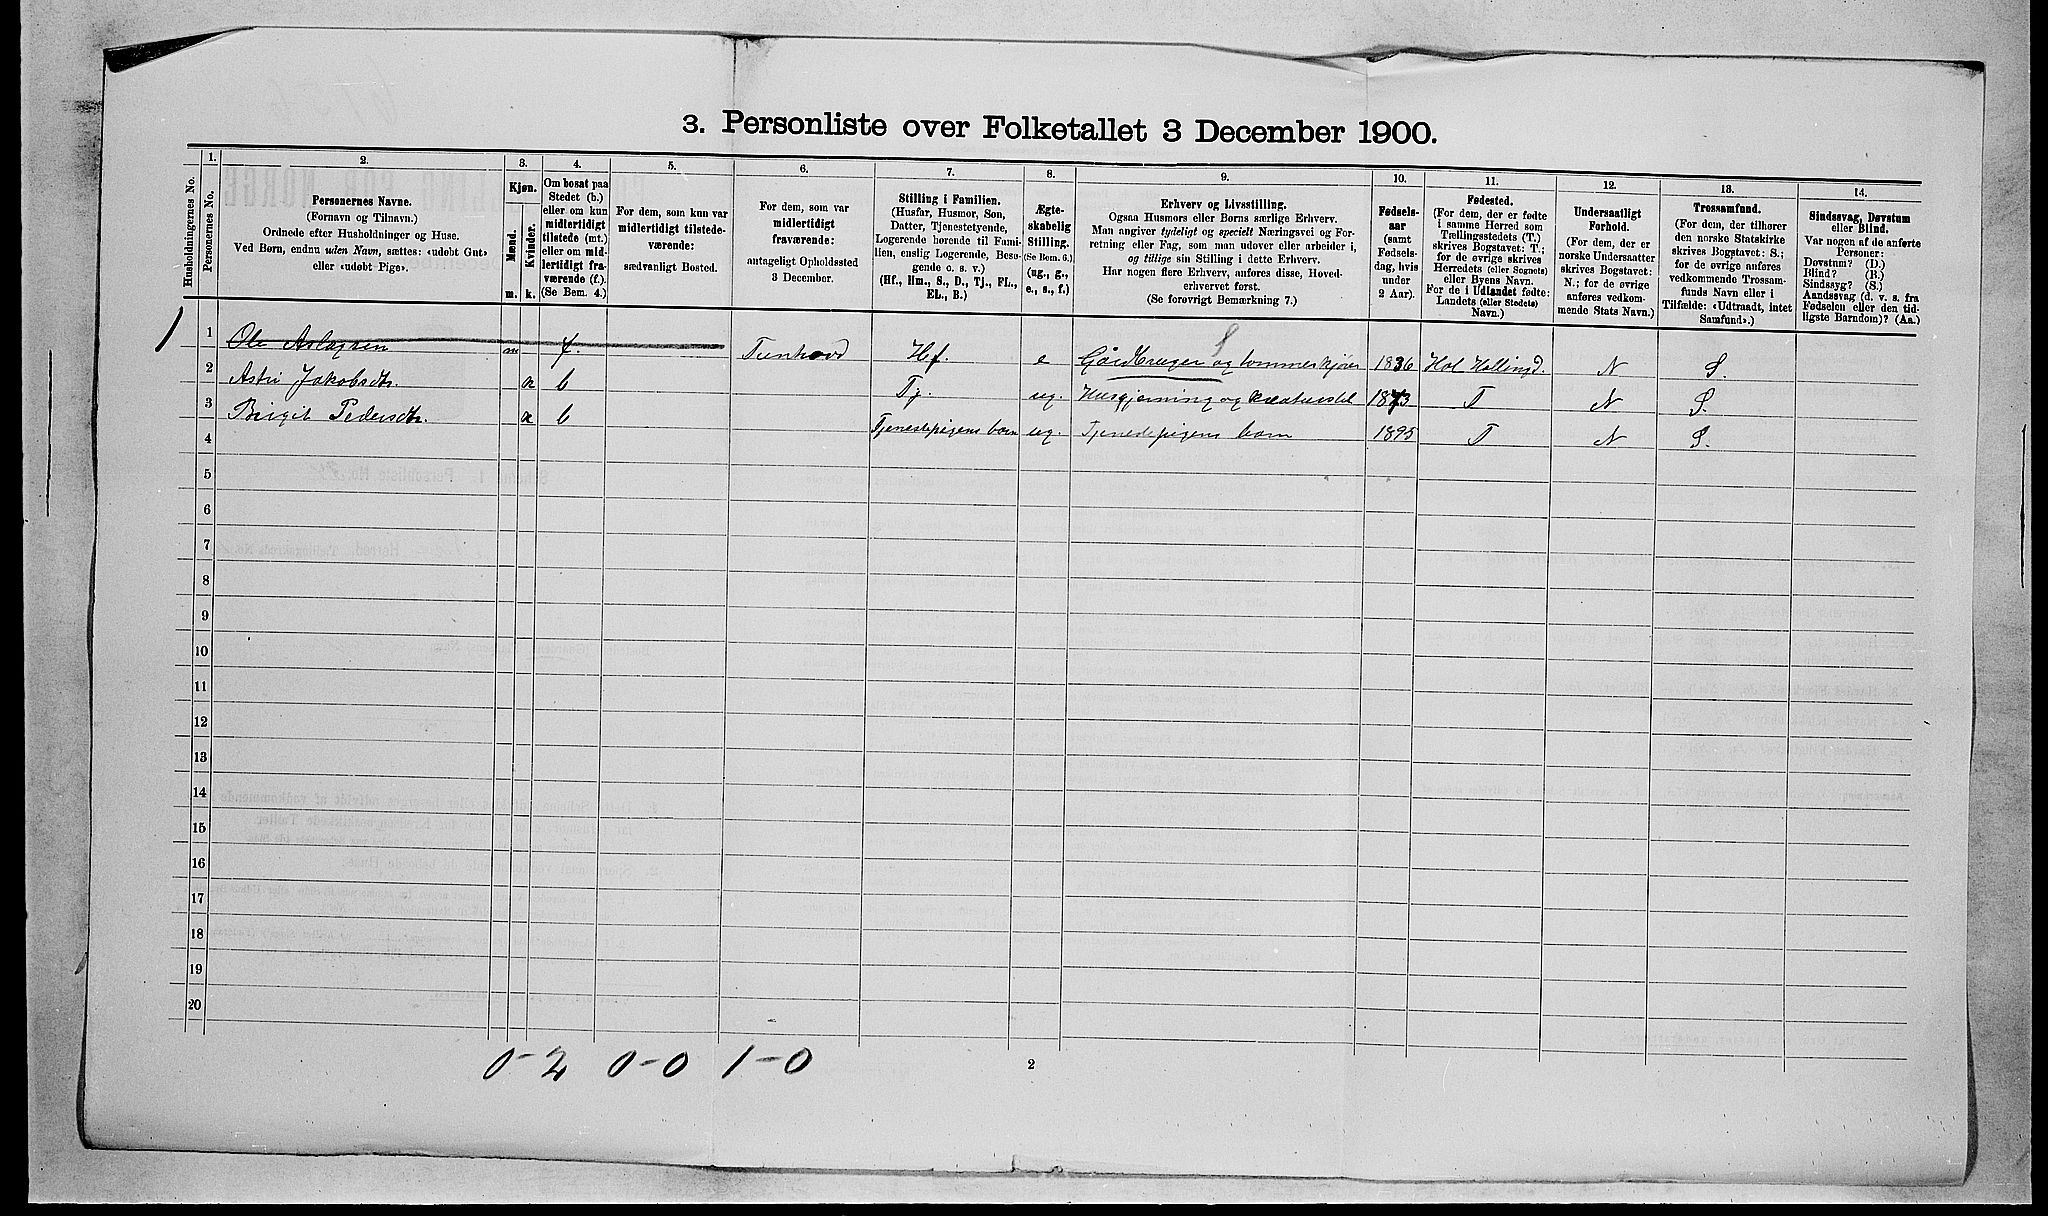 3. Personliste over Folketallet 3 December 1900.
Husholdningernes No.
1.
Personernes No.
2.
Personernes Navne.
(Fornavn og Tilnavn.)
Ordnede efter Husholdninger og Huse.
Ved Børn, endnu uden Navn, sættes: «udøbt Gut»
eller «udøbt Pige».
3.
Kjøn.
Mænd.
Kvinder.
m.
k.
4.
Om bosat paa
Stedet (b.)
eller om kun
midlertidigt
tilstede (mt.)
eller om mid-
lertidigt fra-
værende (f.).
(Se Bem. 4.)
5.
For dem, som kun var
midlertidigt tilstede-
værende:
sædvanligt Bosted.
6.
For dem, som var
midlertidigt
fraværende:
antageligt Opholdssted
3 December.
7.
Stilling i Familien.
(Husfar, Husmor, Søn,
Datter, Tjenestetyende,
Logerende hørende til Fami-
lien, enslig Logerende, Besø-
gende o. s. v.)
(Hf., Hm., S., D., Tj., FL.,
EL., B.)
8.
Ægte-
skabelig
Stilling.
(Se Bem. 6.)
(ug., g.,
e., s., f.)
9.
Erhverv og Livsstilling.
Ogsaa Husmors eller Børns særlige Erhverv.
Man angiver tydeligt og specielt Næringsvei og For-
retning eller Fag, som man udøver eller arbeider i,
og tillige sin Stilling i dette Erhverv.
Har nogen flere Erhverv, anføres disse, Hoved-
erhvervet først.
(Se forøvrigt Bemærkning 7.)
10.
Fødsels-
aar
(samt
Fødsels-
dag, hvis
under
2 Aar).
11.
Fødested.
(For dem, der er fødte
i samme Herred som
Tællingsstedets (T.)
skrives Bogstavet: T.;
for de øvrige skrives
Herredets (eller Sognets)
eller Byens Navn.
For de i Udlandet fødte:
Landets (eller Stedets)
Navn.)
12.
Undersaatligt
Forhold.
(For dem, der er
norske Undersaatter
skrives Bogstavet:
N.; for de øvrige
anføres vedkom-
mende Stats Navn.)
13.
Trossamfund.
(For dem, der tilhører
den norske Statskirke
skrives Bogstavet: S.;
for de øvrige anføres
vedkommende Trossam-
funds Navn eller i
Tilfælde: «Udtraadt, intet
Samfund».)
14.
Sindssvag, Døvstum
eller Blind.
Var nogen af de anførte
Personer:
Døvstum? (D.)
Blind? (B.)
Sindssyg? (S.)
Aandssvag (d. v. s. fra
Fødselen eller den tid-
ligste Barndom)? (Aa.)
1 1 Ole Aslagsen m f. Tunhovd Hf. e Gårdbruger og tømmerkjører S 1836 Hol Hallingd. N S.
2 Astri Jakobsdtr. k b Tj. ug. Husgjerning og kreaturstel 1873 T N S.
3 Birgit Pedersdtr. k b Tjenestepigens barn ug. Tjenestepigens barn 1895 T N S.
4
5
6
7
8
9
10
11
12
13
14
15
16
17
18
19
20
0-2 0-0 1-0
2